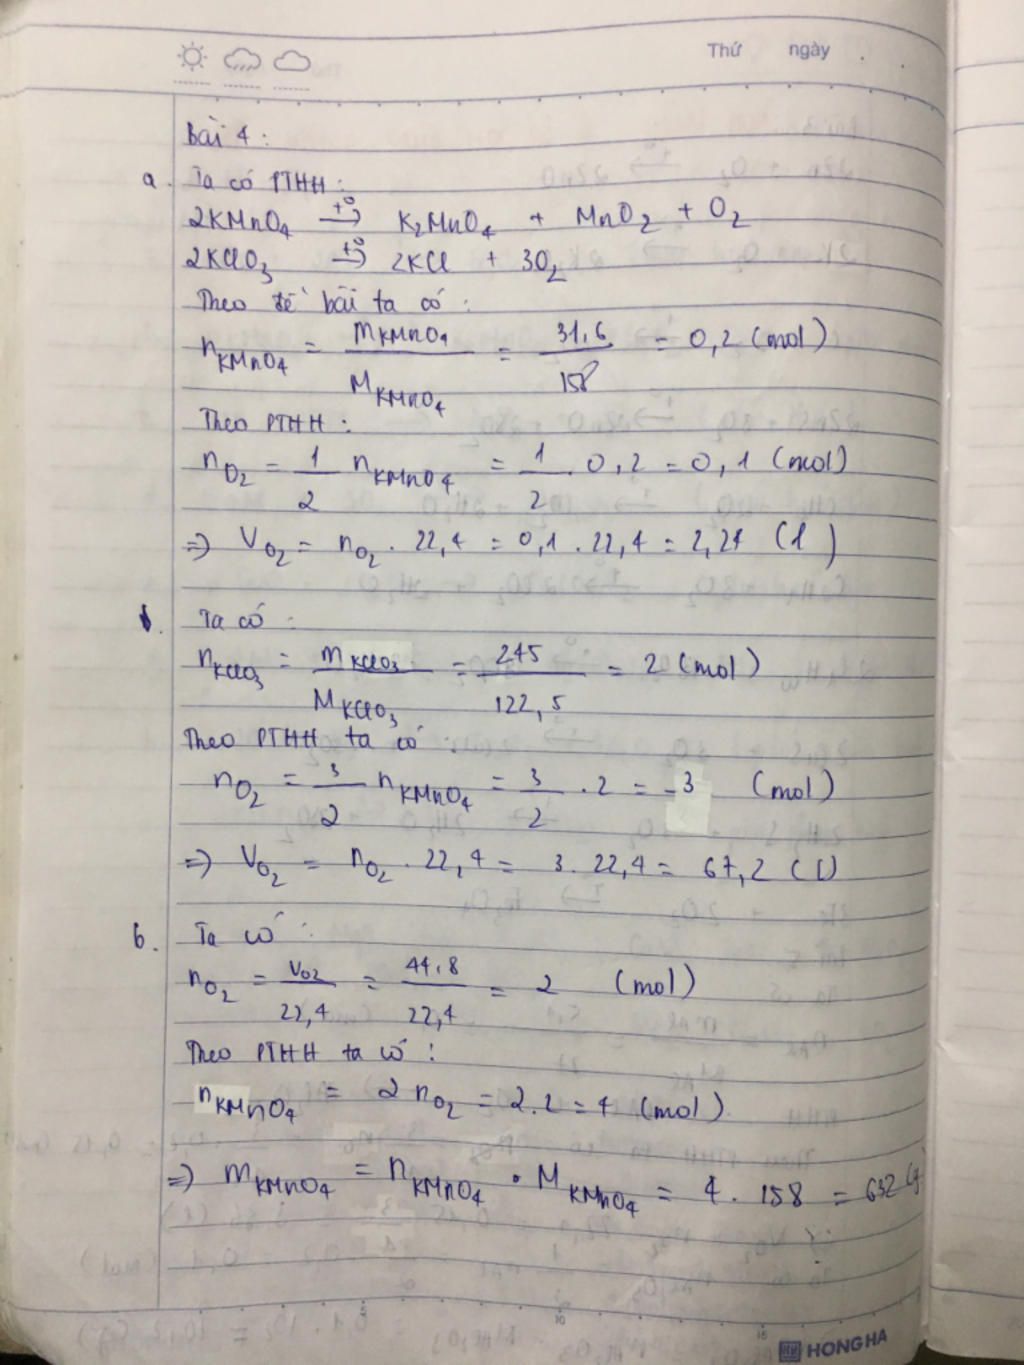 Thứ ngày
Bài 4 :
a. Ta có PTHH :
2KMnO₄ →(t°) K₂MnO₄ + MnO₂ + O₂
2KClO₃ →(t°) 2KCl + 3O₂
Theo đề bài ta có :
n_KMnO₄ = m_KMnO₄ / M_KMnO₄ = 31,6 / 158 = 0,2 (mol)
Theo PTHH :
n_O₂ = 1/2 n_KMnO₄ = 1/2 . 0,2 = 0,1 (mol)
=> V_O₂ = n_O₂ . 22,4 = 0,1 . 22,4 = 2,24 (l)
Ta có :
n_KClO₃ = m_KClO₃ / M_KClO₃ = 245 / 122,5 = 2 (mol)
Theo PTHH ta có :
n_O₂ = 3/2 n_KMnO₄ = 3/2 . 2 = 3 (mol)
=> V_O₂ = n_O₂ . 22,4 = 3 . 22,4 = 67,2 (l)
b. Ta có :
n_O₂ = V_O₂ / 22,4 = 44,8 / 22,4 = 2 (mol)
Theo PTHH ta có :
n_KMnO₄ = 2 n_O₂ = 2.2 = 4 (mol)
=> m_KMnO₄ = n_KMnO₄ . M_KMnO₄ = 4 . 158 = 632 (g)
5 10 15
HONG HA